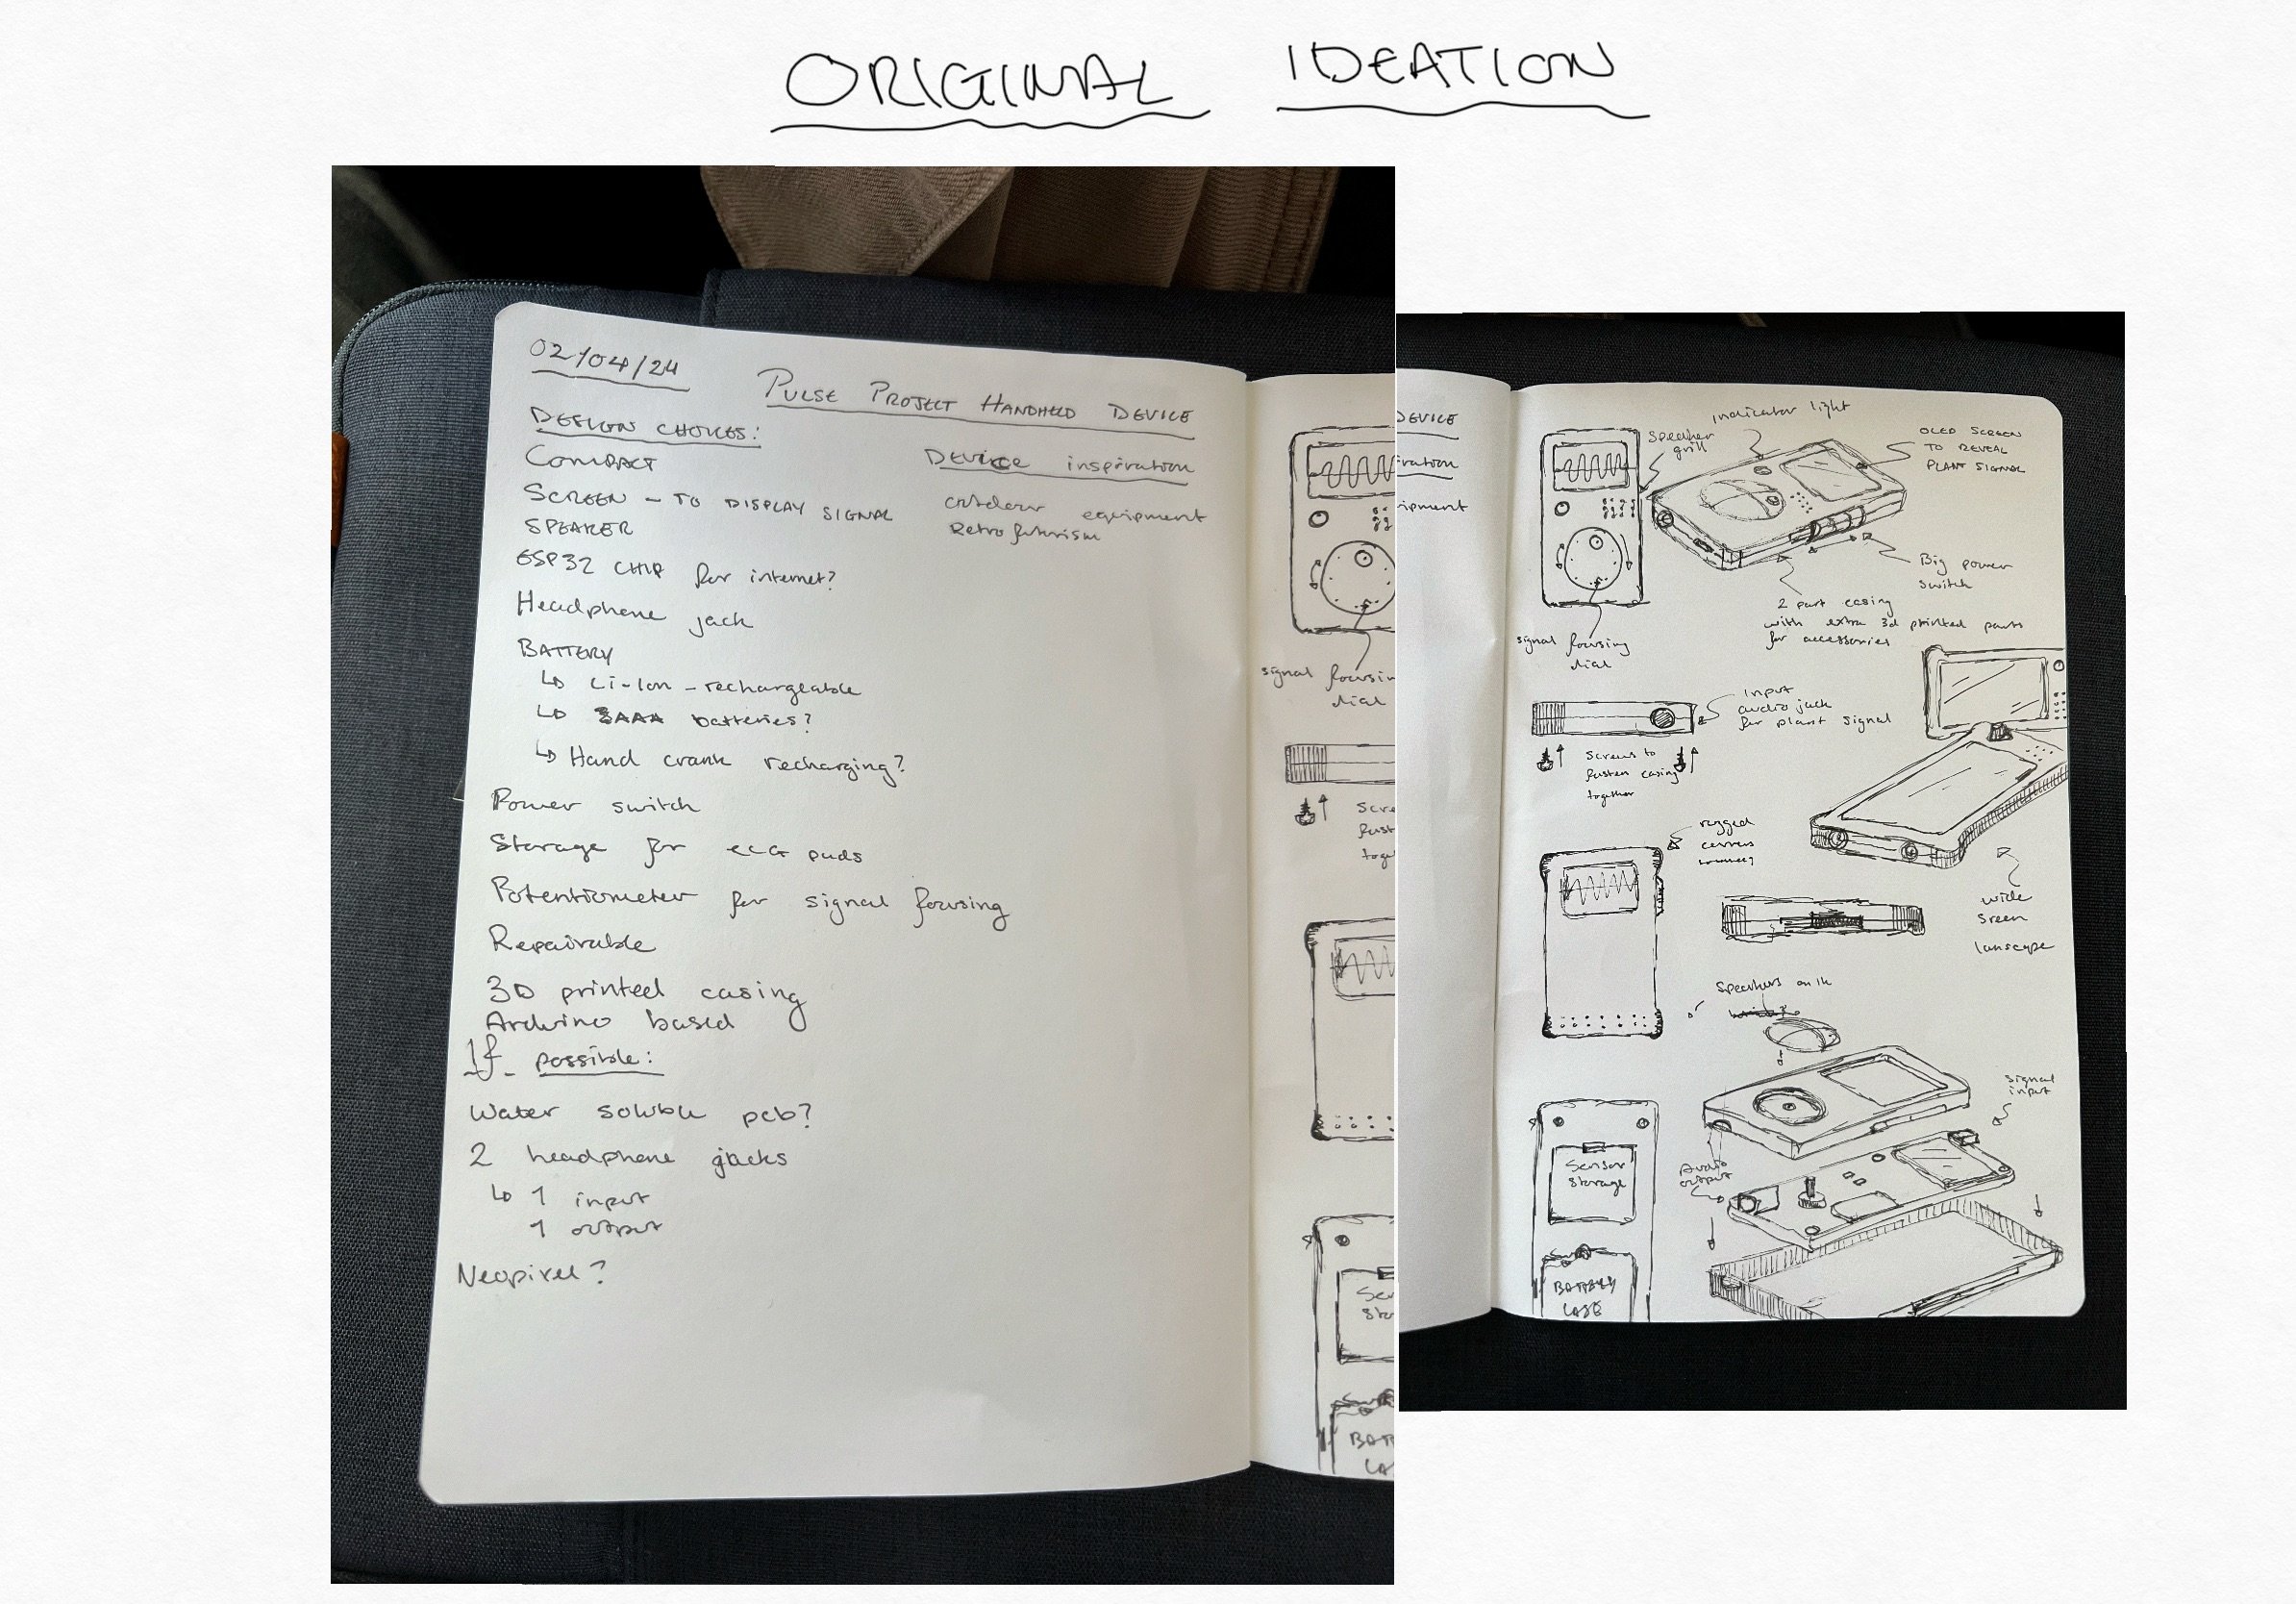 ORIGINAL IDEATION
02/04/24
PULSE PROJECT HANDHELD DEVICE
DESIGN CHOICES:
COMPACT
SCREEN - TO DISPLAY SIGNAL
SPEAKER
ESP32 CHIP for internet?
Headphone jack
BATTERY
↳ Li-Ion - rechargeable
↳ 3AAA batteries?
↳ Hand crank recharging?
Power switch
Storage for ECG pads
Potentiometer for signal focusing
Repairable
3D printed casing
Arduino based
If possible:
Water soluble pcb?
2 headphone jacks
↳ 1 input
1 output
Neopixel?
Device inspiration
outdoor equipment
Retro futurism
signal focusin
dial
Scre
fast
toge
Sen
Sto
BAT
CA
DEVICE
iration
ipment
indicator light
Speaker
grill
OLED SCREEN
TO REVEAL
PLANT SIGNAL
Big power
switch
2 part casing
with extra 3d printed parts
for accessories
signal focusing
dial
Input
audio jack
for plant signal
Screws to
fasten casing
together
rugged
corners
wide
sreen
lanscape
Speakers on the
signal
input
Audio
output
Sensor
Storage
BATTERY
CASE